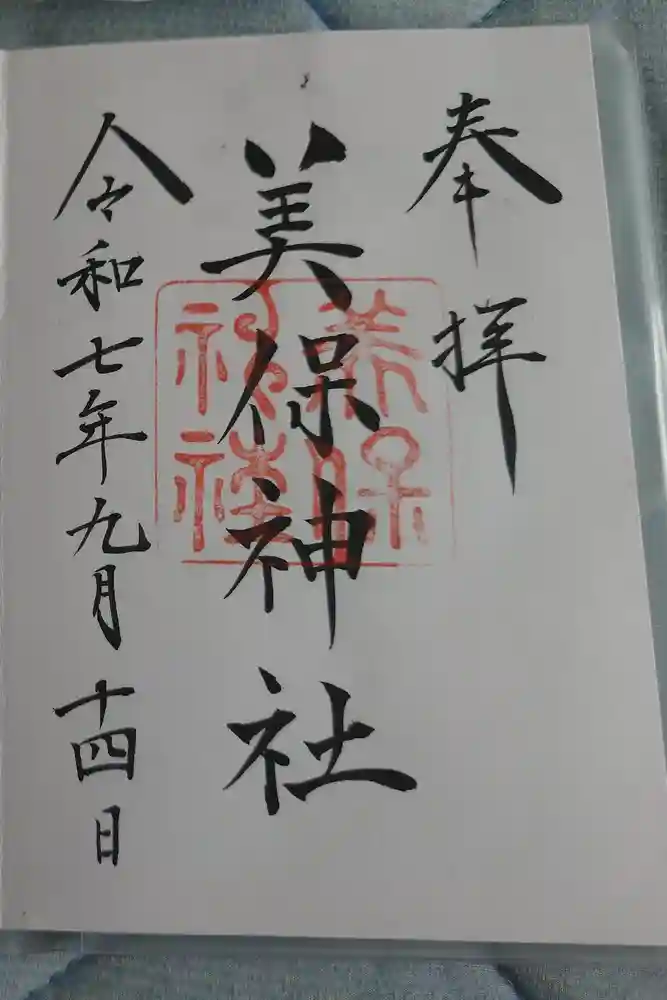 奉拝
美保神社
令和七年九月十四日
美保
神社